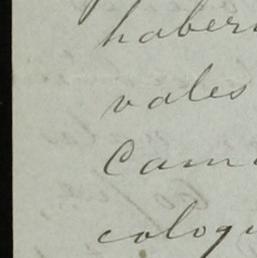 haber
vales
Cam
colog